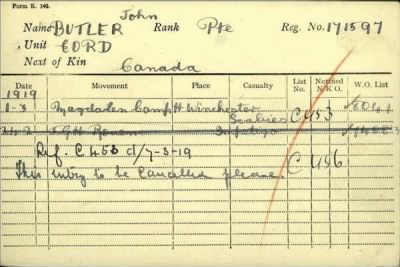 Form R. 149.
John
Name BUTLER Rank Pte Reg. No. 171597
Unit EORD
Next of Kin Canada
Date Movement Place Casualty List No. Notified N.K.O. W.O. List
1919
1-3 Magdalen Camp H Winchester Scabies C453
Ref. C453 d/7-3-19
This entry to be Cancelled please. C456